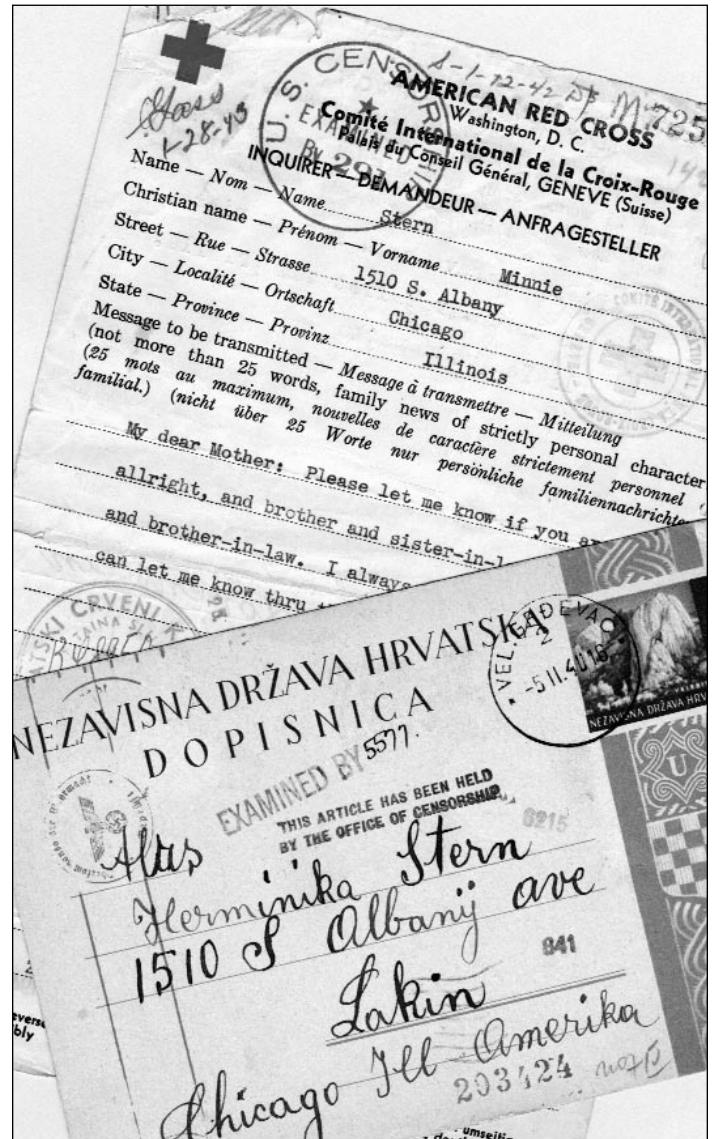 1-28-43
U. S. CENSORSHIP
EXAMINED
By 291
AMERICAN RED CROSS
Washington, D. C.
Comité International de la Croix-Rouge
Palais du Conseil Général, GENEVE (Suisse)
INQUIRER — DEMANDEUR — ANFRAGESTELLER
Name — Nom — Name Stern
Christian name — Prénom — Vorname Minnie
Street — Rue — Strasse 1510 S. Albany
City — Localité — Ortschaft Chicago
State — Province — Provinz Illinois
Message to be transmitted — Message à transmettre — Mitteilung
(not more than 25 words, family news of strictly personal character
(25 mots au maximum, nouvelles de caractère strictement personnel
familial.) (nicht über 25 Worte nur persönliche familiennachrichten
My dear Mother: Please let me know if you
allright, and brother and sister-in-
and brother-in-law. I always
can let me know thru
NEZAVISNA DRŽAVA HRVATSKA
DOPISNICA
NEZAVISNA DRŽAVA HRV
U
EXAMINED BY 5577.
THIS ARTICLE HAS BEEN HELD
BY THE OFFICE OF CENSORSHIP
6215
Herminika Stern
1510 S Albany ave
841
Lakin
Chicago Ill Amerika
203424
umseitig